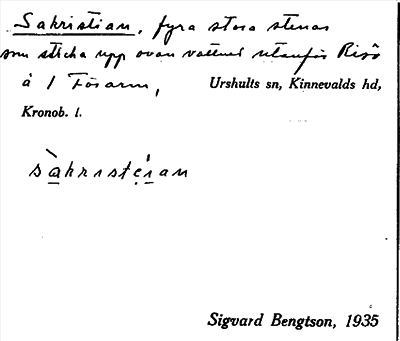 Sakristian, fyra stora stenar
som sticka upp ovan vattnet utanför Risö
å 1 Färarm,
Urshults sn, Kinnevalds hd,
Kronob. l.
sàkristẹ́ian
Sigvard Bengtson, 1935